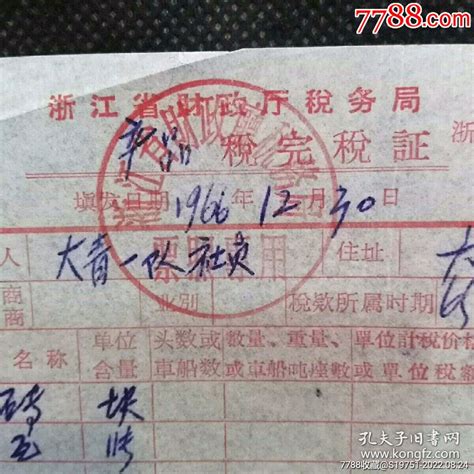 7788.com
浙江省财政厅税务局
产品 税完税証
浙
填发日期 1966 年 12 月 30 日
人 大青一队社员 住址 大
商 业别 稅欵所属时期
商
名称 单位 头数或数量、重量、單位計税价格
含量 車船数或車船吨座数或單位税額
砖 块
瓦 张
孔夫子旧书网
7788收藏@S19751-2022-08-24
www.kongfz.com